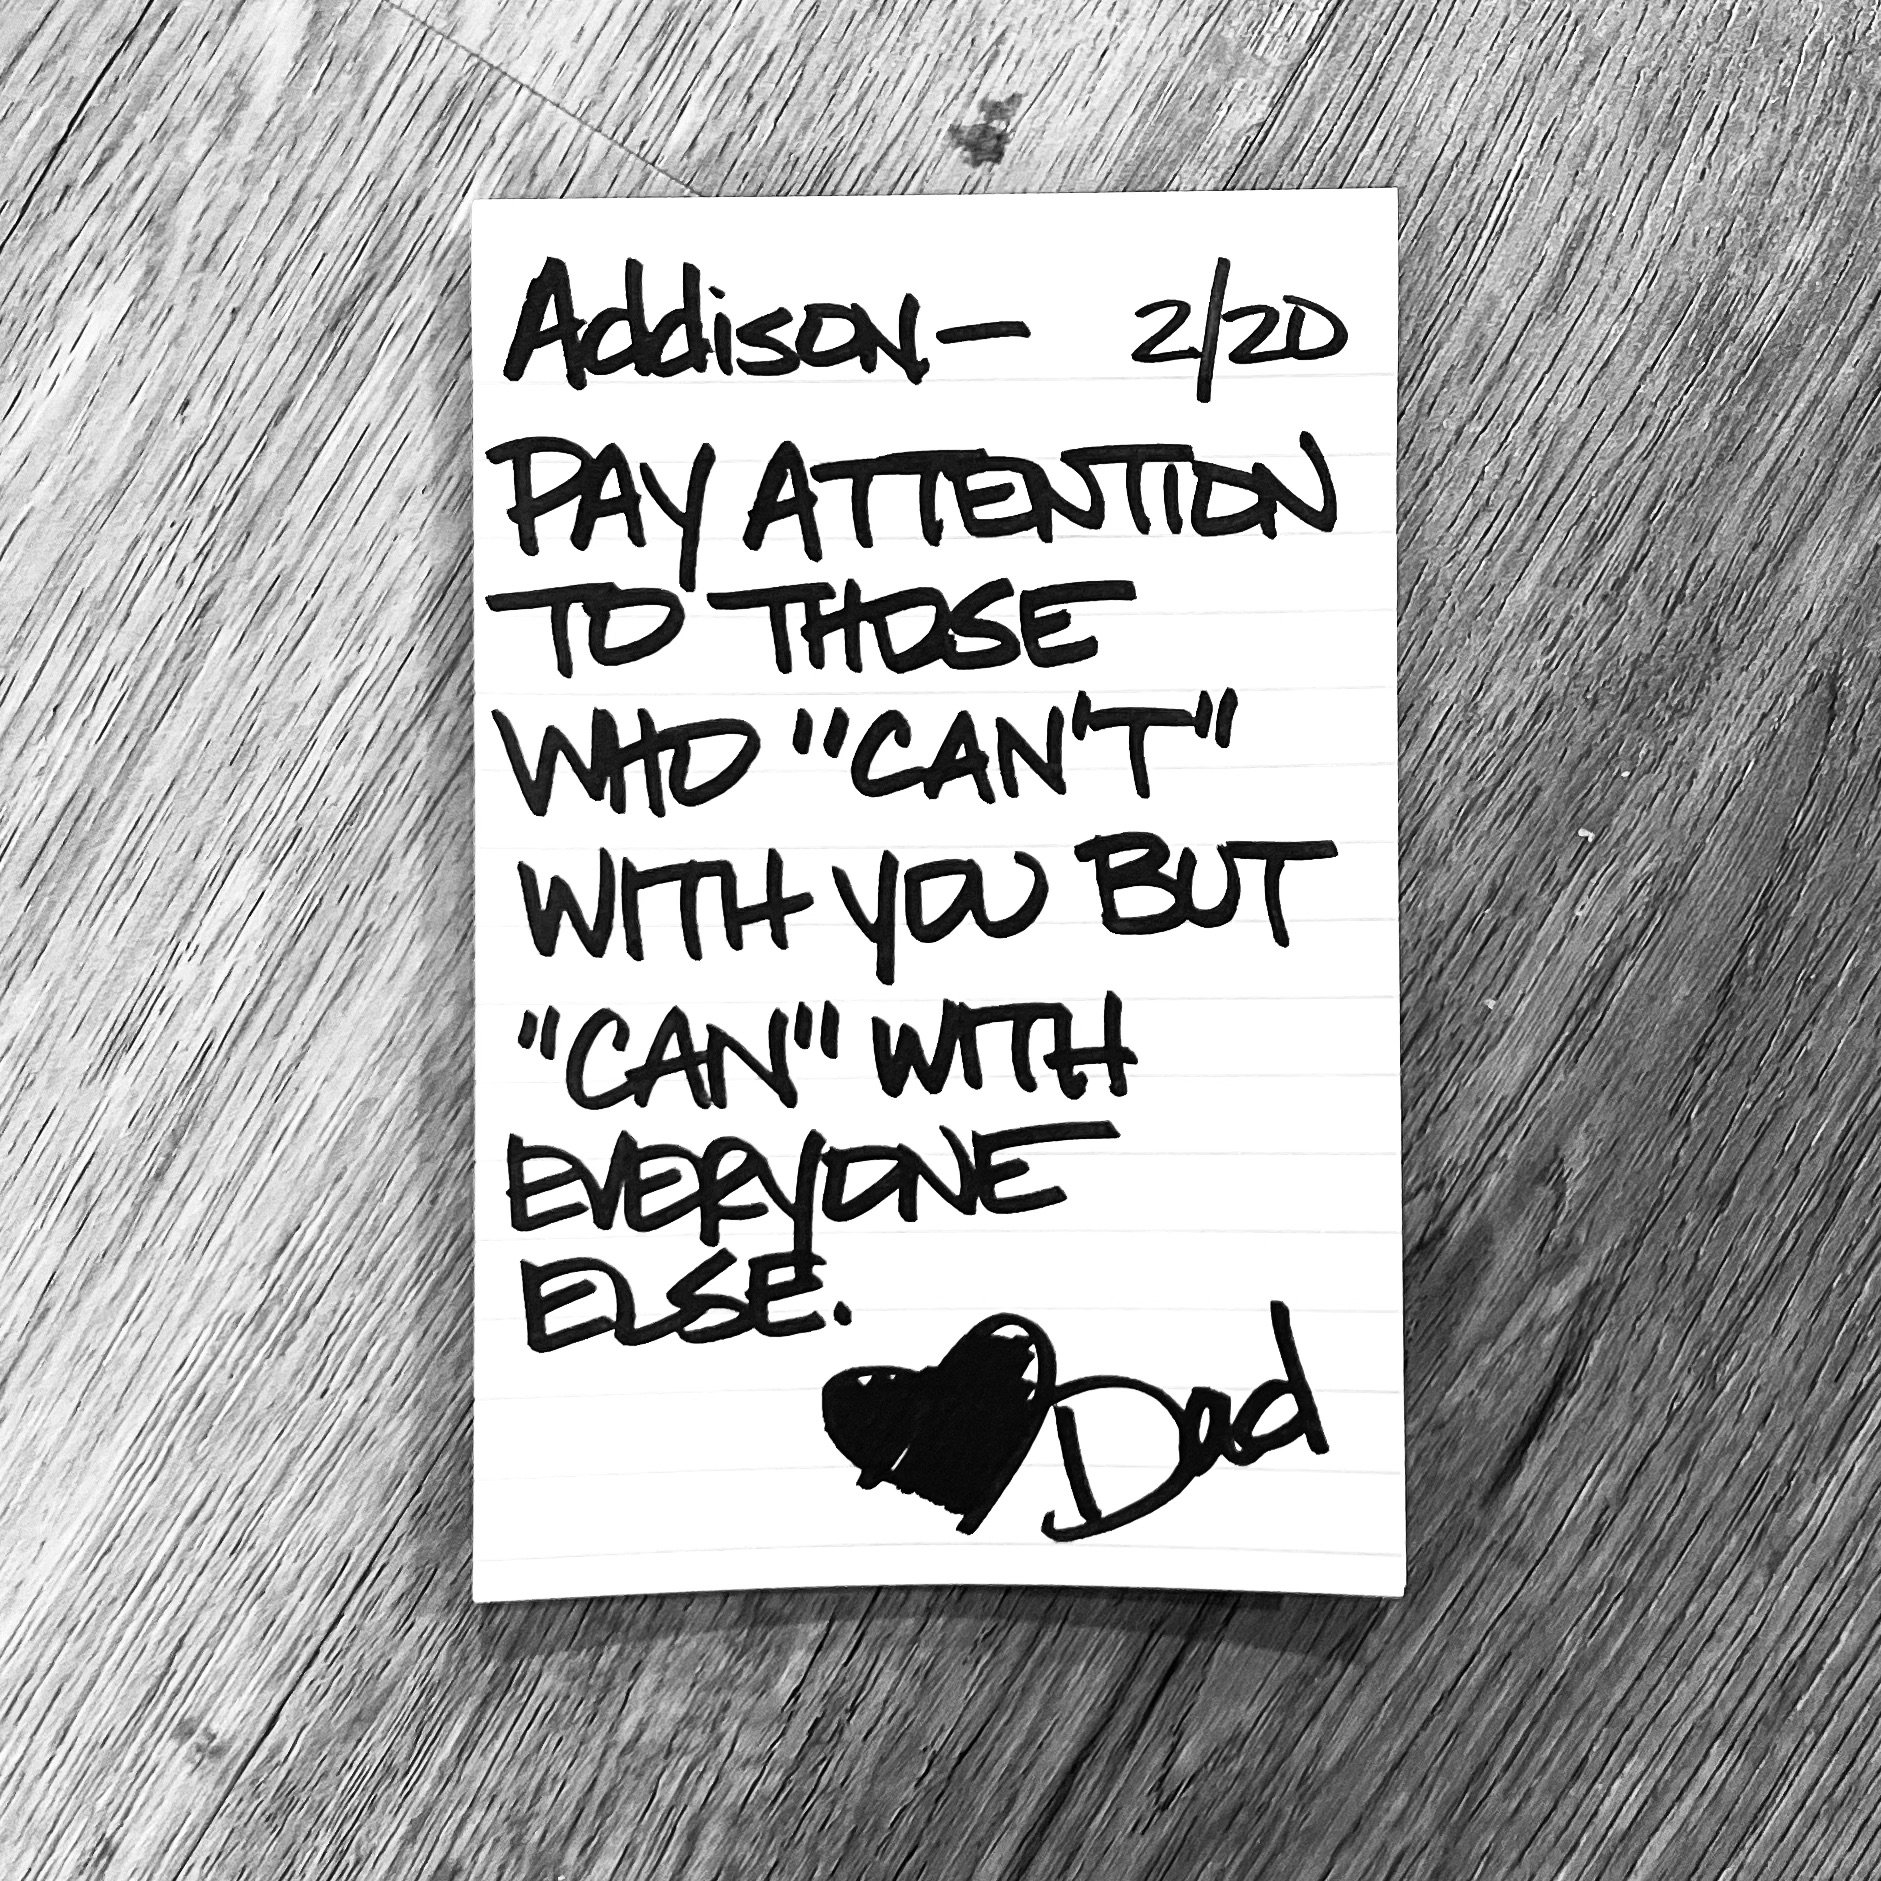 Addison— 2/20
PAY ATTENTION
TO THOSE
WHO "CAN'T"
WITH YOU BUT
"CAN" WITH
EVERYONE
ELSE.
♥Dad